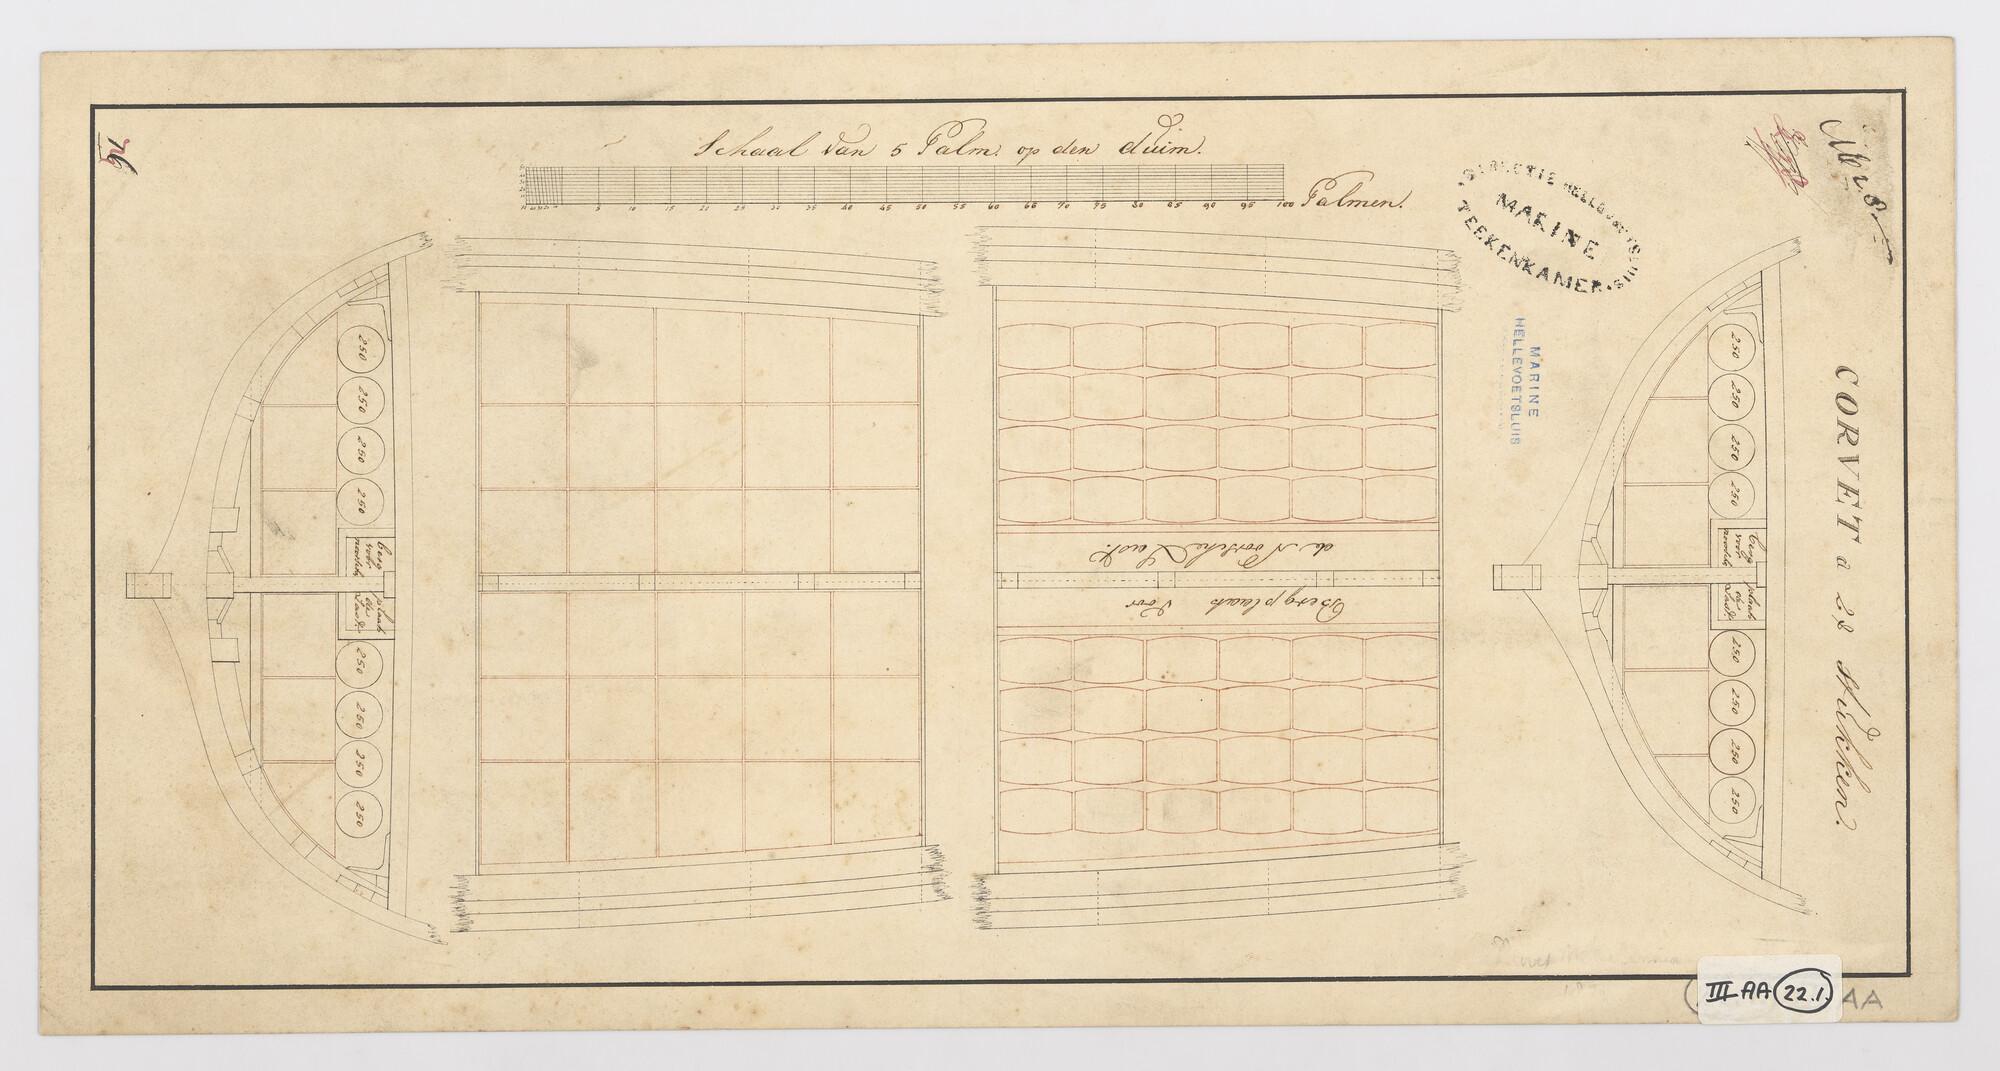 Schaal van 5 Palm. op den duim.
5 10 15 20 25 30 35 40 45 50 55 60 65 70 75 80 85 90 95 100 Palmen.
DIRECTIE HELLEVOETSLUIS.
MARINE
TEEKENKAMER
MARINE
HELLEVOETSLUIS
CORVET à 28 stukken.
76
250
250
250
250
berg plaats
voor de
Last.
250
250
250
250
de Noorsche Last.
Bergplaats voor
250
250
250
250
berg plaats
voor de
Last.
250
250
250
250
III AA 22.1.
AA